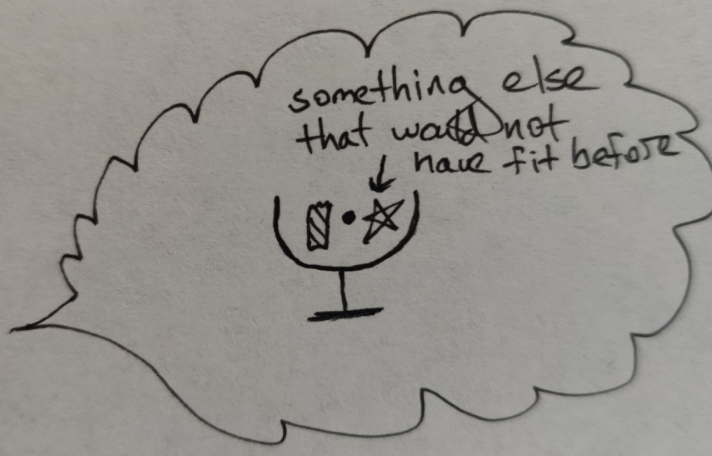 something else
that would not
have fit before